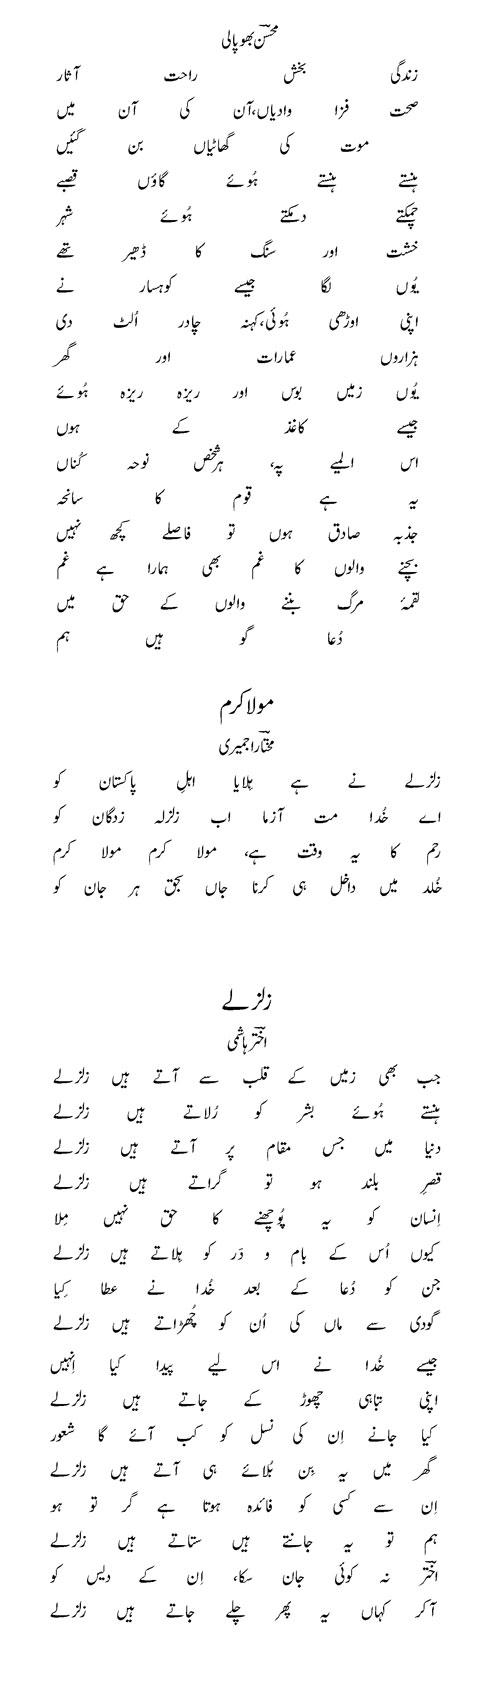 محسنؔ بھوپالی
زندگی بخش راحت آثار
صحت فزا وادیاں،آن کی آن میں
موت کی گھاٹیاں بن گئیں
ہنستے ہنستے ہُوئے گاؤں قصبے
چمکتے دمکتے ہُوئے شہر
خشت اور سنگ کا ڈھیر تھے
یُوں لگا جیسے کوہسار نے
اپنی اوڑھی ہُوئی،کہنہ چادر اُلٹ دی
ہزاروں عمارات اور گھر
یُوں زمیں بوس اور ریزہ ریزہ ہُوئے
جیسے کاغذ کے ہوں
اس المیے پہ، ہرشخص نوحہ کُناں
یہ ہے قوم کا سانحہ
جذبہ صادق ہوں تو فاصلے کچھ نہیں
بچنے والوں کا غم بھی ہمارا ہے غم
لقمۂ مرگ بننے والوں کے حق میں
دُعا گو ہیں ہم
مولا کرم
مختارؔ اجمیری
زلزلے نے ہے ہِلایا اہلِ پاکستان کو
اے خُدا مت آزما اب زلزلہ زدگان کو
رحم کا یہ وقت ہے، مولا کرم مولا کرم
خُلد میں داخل ہی کرنا جاں بحق ہر جان کو
زلزلے
اخترؔ ہاشمی
جب بھی زمیں کے قلب سے آتے ہیں زلزلے
ہنستے ہُوئے بشر کو رُلاتے ہیں زلزلے
دنیا میں جس مقام پر آتے ہیں زلزلے
قصرِ بلند ہو تو گراتے ہیں زلزلے
اِنسان کو یہ پُوچھنے کا حق نہیں مِلا
کیوں اُس کے بام و دَر کو ہِلاتے ہیں زلزلے
جن کو دُعا کے بعد خُدا نے عطا کِیا
گودی سے ماں کی اُن کو چُھڑاتے ہیں زلزلے
جیسے خُدا نے اس لیے پیدا کیا اِنہیں
اپنی تباہی چھوڑ کے جاتے ہیں زلزلے
کیا جانے اِن کی نسل کو کب آئے گا شعور
گھر میں یہ بِن بُلائے ہی آتے ہیں زلزلے
اِن سے کسی کو فائدہ ہوتا ہے گر تو ہو
ہم تو یہ جانتے ہیں ستاتے ہیں زلزلے
اخترؔ نہ کوئی جان سکا، اِن کے دیس کو
آکر کہاں یہ پھر چلے جاتے ہیں زلزلے